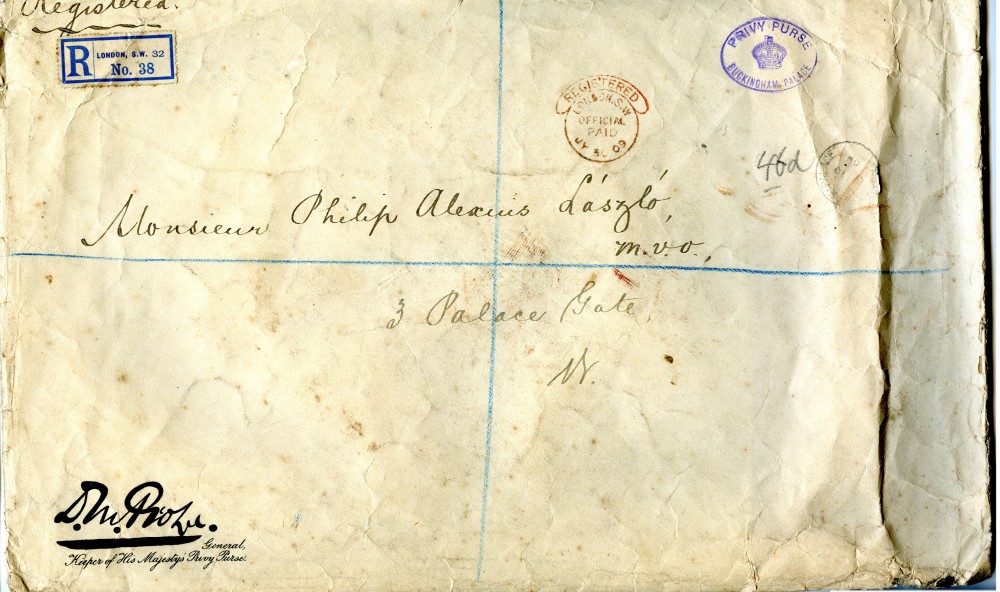 Registered.
R LONDON, S.W. 32
No. 38
PRIVY PURSE
BUCKINGHAM PALACE
REGISTERED
LONDON. S.W
OFFICIAL
PAID
JY 30 09
46d
Monsieur Philip Alexius László,
m.v.o.,
3 Palace Gate,
W.
D. M. Probyn.
General,
Keeper of His Majesty's Privy Purse.